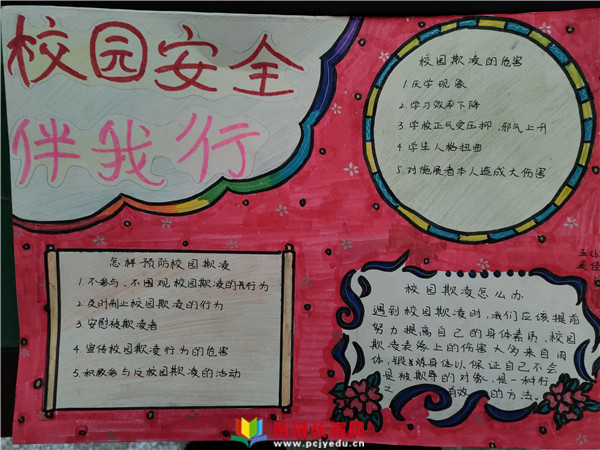 校园安全
伴我行
校园欺凌的危害
1.厌学现象
2.学习效率下降
3.学校正气受压抑,邪气上升
4.学生人格扭曲
5.对施暴者本人造成大伤害
怎样预防校园欺凌
1.不参与、不围观校园欺凌的行为
2.及时制止校园欺凌的行为
3.安慰被欺凌者
4.宣传校园欺凌行为的危害
5.积极参与反校园欺凌的活动
校园欺凌怎么办
遇到校园欺凌时,我们应该提前
努力提高自己的身体素质,校园
欺凌表象上的伤害大多来自肉
体,锻炼身体以保证自己不会
是被欺辱的对象,是一种行
之有效的方法。
www.pcjyedu.cn